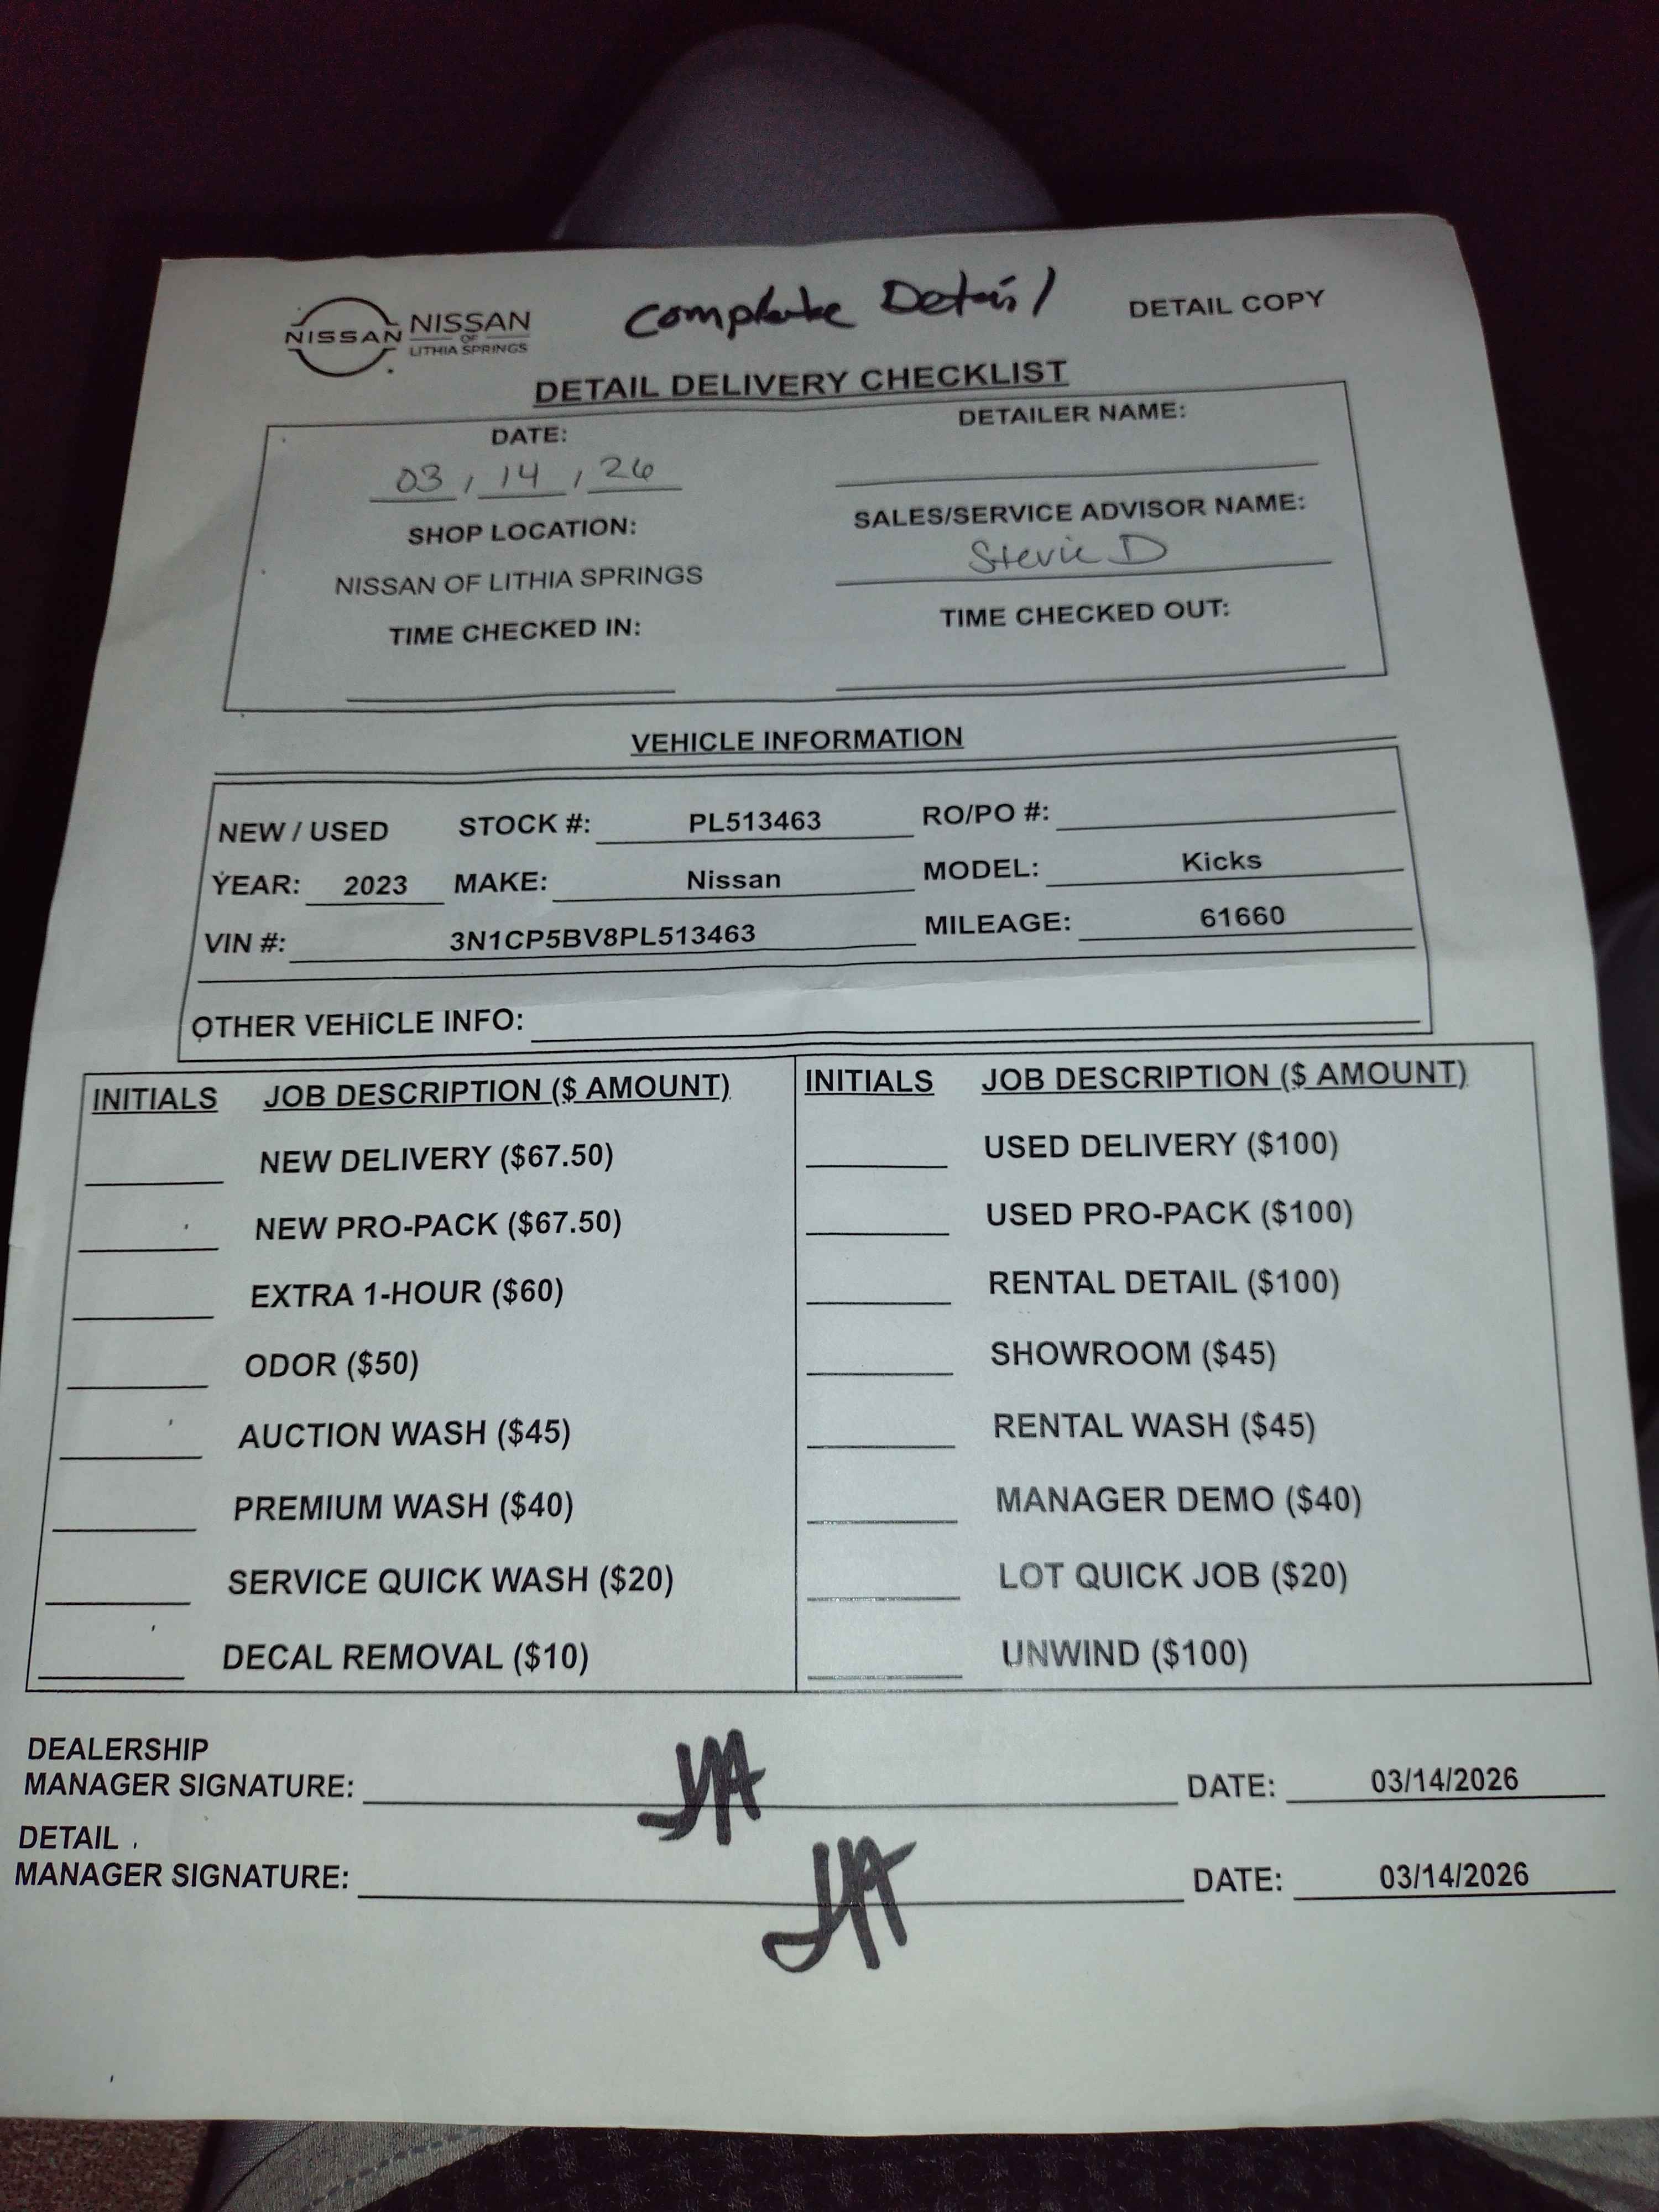 Complete Detail
DETAIL COPY
NISSAN
NISSAN
OF
LITHIA SPRINGS
DETAIL DELIVERY CHECKLIST
DATE:
03 / 14 / 26
DETAILER NAME:
SHOP LOCATION:
NISSAN OF LITHIA SPRINGS
SALES/SERVICE ADVISOR NAME:
Stevie D
TIME CHECKED IN:
TIME CHECKED OUT:
VEHICLE INFORMATION
NEW / USED STOCK #: PL513463 RO/PO #:
YEAR: 2023 MAKE: Nissan MODEL: Kicks
VIN #: 3N1CP5BV8PL513463 MILEAGE: 61660
OTHER VEHICLE INFO:
INITIALS JOB DESCRIPTION ($ AMOUNT)
NEW DELIVERY ($67.50)
NEW PRO-PACK ($67.50)
EXTRA 1-HOUR ($60)
ODOR ($50)
AUCTION WASH ($45)
PREMIUM WASH ($40)
SERVICE QUICK WASH ($20)
DECAL REMOVAL ($10)
INITIALS JOB DESCRIPTION ($ AMOUNT)
USED DELIVERY ($100)
USED PRO-PACK ($100)
RENTAL DETAIL ($100)
SHOWROOM ($45)
RENTAL WASH ($45)
MANAGER DEMO ($40)
LOT QUICK JOB ($20)
UNWIND ($100)
DEALERSHIP
MANAGER SIGNATURE: DATE: 03/14/2026
DETAIL
MANAGER SIGNATURE: DATE: 03/14/2026